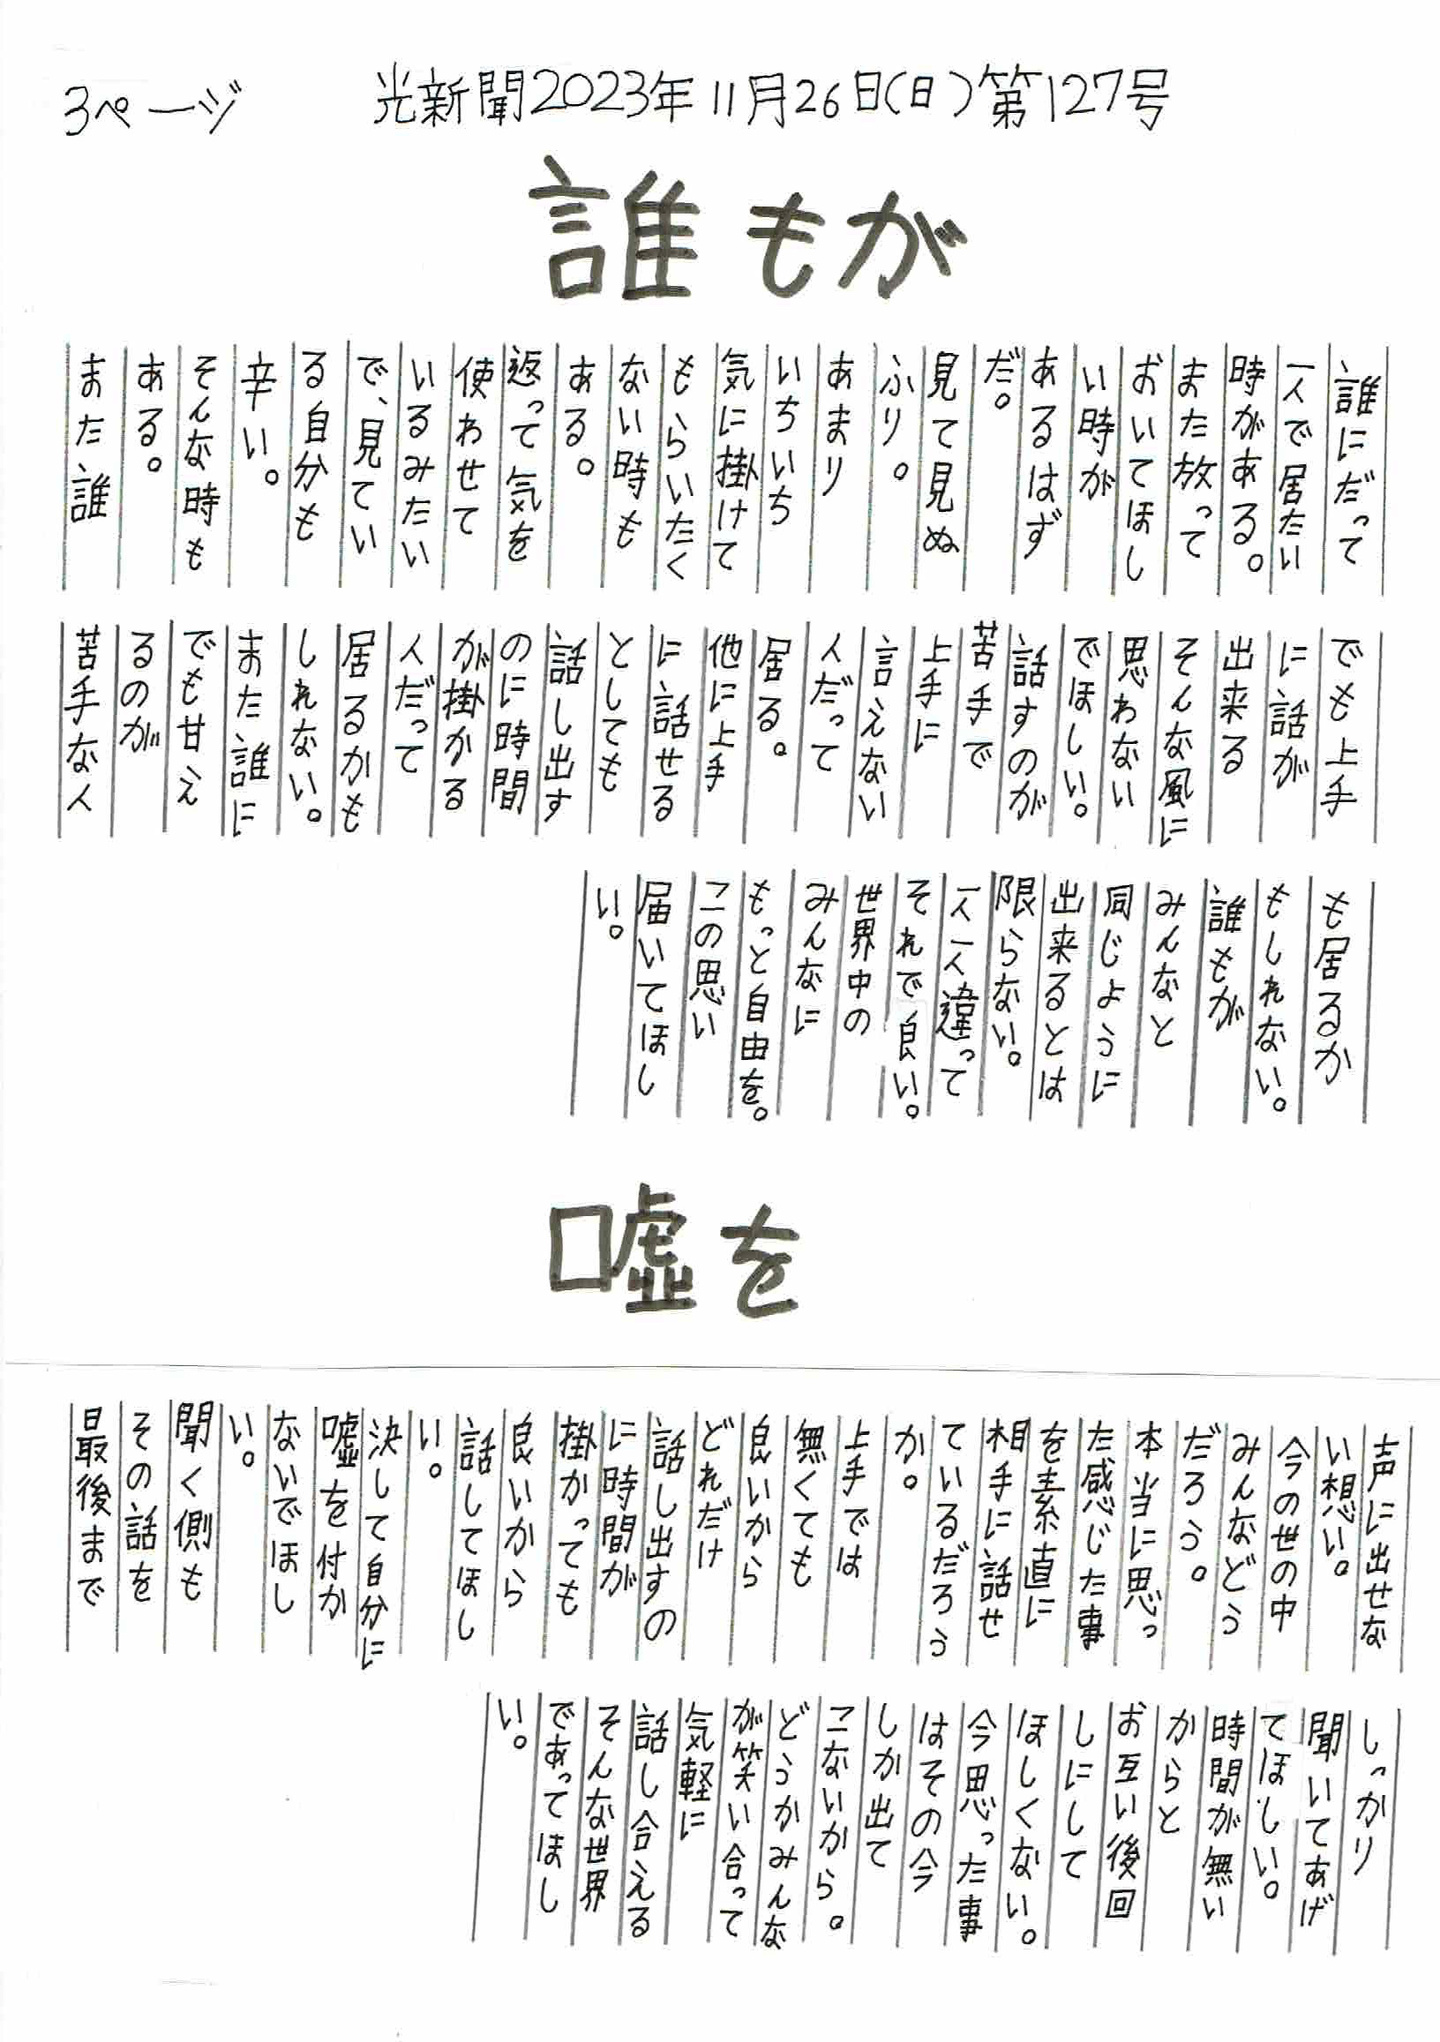 3ページ
光新聞2023年11月26日(日)第127号
誰もが
誰にだって
一人で居たい
時がある。
また放って
おいてほし
い時が
あるはず
だ。
見て見ぬ
ふり。
あまり
いちいち
気に掛けて
もらいたく
ない時も
ある。
返って気を
使わせて
いるみたい
で、見てい
る自分も
辛い。
そんな時も
ある。
また誰
でも上手
に話が
出来る
そんな風に
思わない
でほしい。
話すのが
苦手で
上手に
言えない
人だって
居る。
他に上手
に話せる
としても
話し出す
のに時間
が掛かる
人だって
居るかも
しれない。
また誰に
でも甘え
るのが
苦手な人
も居るか
もしれない。
誰もが
みんなと
同じように
出来るとは
限らない。
一人一人違って
それで良い。
世界中の
みんなに
もっと自由を。
この思い
届いてほし
い。
嘘を
声に出せな
い想い。
今の世の中
みんなどう
だろう。
本当に思っ
た感じた事
を素直に
相手に話せ
ているだろう
か。
上手では
無くても
良いから
どれだけ
話し出すの
に時間が
掛かっても
良いから
話してほし
い。
決して自分に
嘘を付か
ないでほし
い。
聞く側も
その話を
最後まで
しっかり
聞いてあげ
てほしい。
時間が無い
からと
お互い後回
しにして
ほしくない。
今思った事
はその今
しか出て
こないから。
どうかみんな
が笑い合って
気軽に
話し合える
そんな世界
であってほし
い。